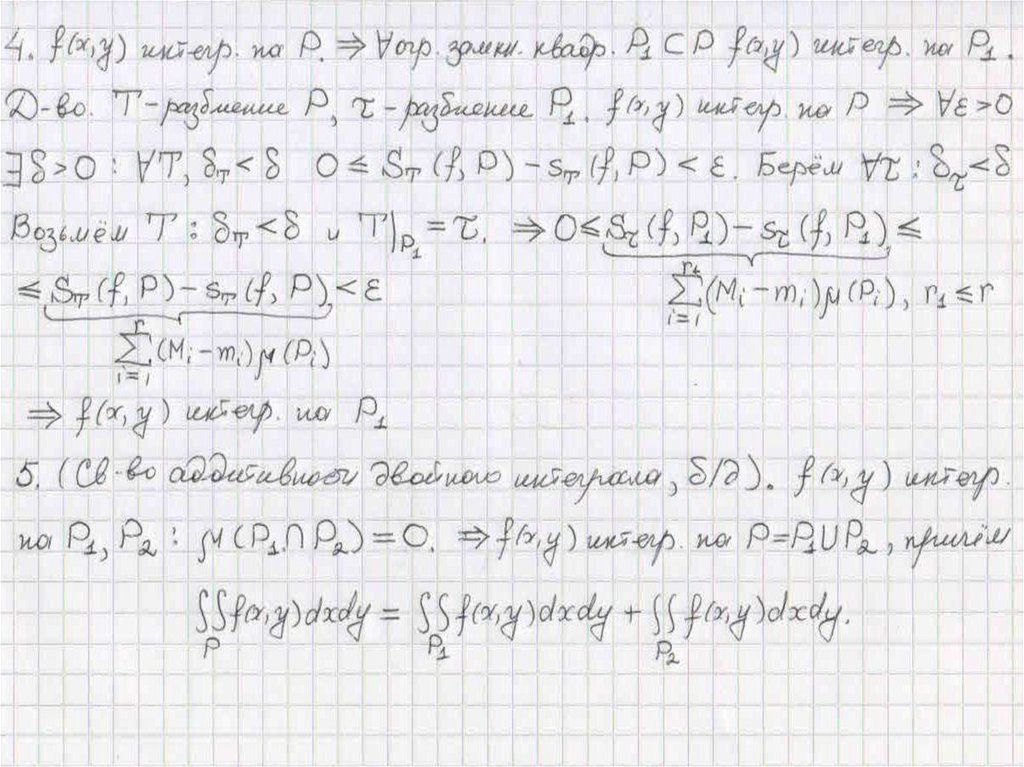 4. f(x,y) интегр. на P. ⇒ ∀огр. замкн. квадр. P₁ ⊂ P f(x,y) интегр. на P₁.
Д-во. T-разбиение P, τ-разбиение P₁. f(x,y) интегр. на P ⇒ ∀ε>0
∃δ>0 : ∀T, δ_T<δ 0 ≤ S_T(f,P) − s_T(f,P) < ε. Берём ∀τ : δ_τ<δ
Возьмём T : δ_T<δ и T|_P₁ = τ. ⇒ 0 ≤ S_τ(f,P₁) − s_τ(f,P₁) ≤
≤ S_T(f,P) − s_T(f,P) < ε
∑_{i=1}^{r₁} (M_i − m_i) μ(P_i), r₁ ≤ r
∑_{i=1}^{r} (M_i − m_i) μ(P_i)
⇒ f(x,y) интегр. на P₁
5. (Св-во аддитивности двойного интеграла, б/д). f(x,y) интегр.
на P₁, P₂ : μ(P₁∩P₂) = 0. ⇒ f(x,y) интегр. на P=P₁∪P₂, причём
∬_P f(x,y)dxdy = ∬_P₁ f(x,y)dxdy + ∬_P₂ f(x,y)dxdy.